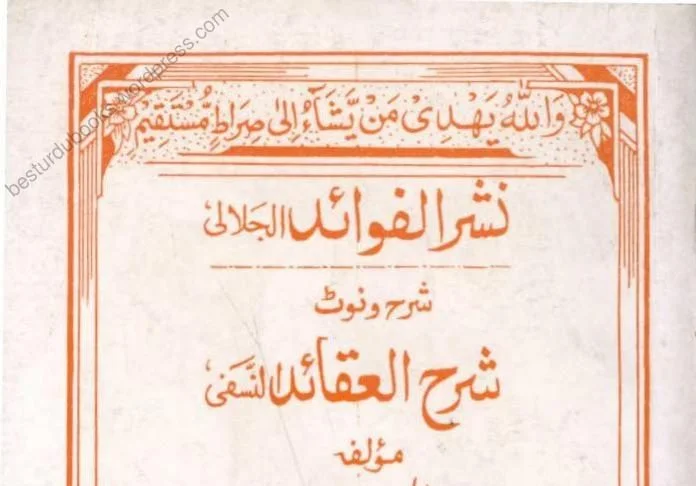 وَاللّٰهُ يَهْدِیْ مَنْ يَّشَآءُ اِلٰى صِرَاطٍ مُّسْتَقِيْمٍ
نشر الفوائد الجلالی
شرح و نوٹ
شرح العقائد النسفی
مؤلفہ
besturdubooks.wordpress.com